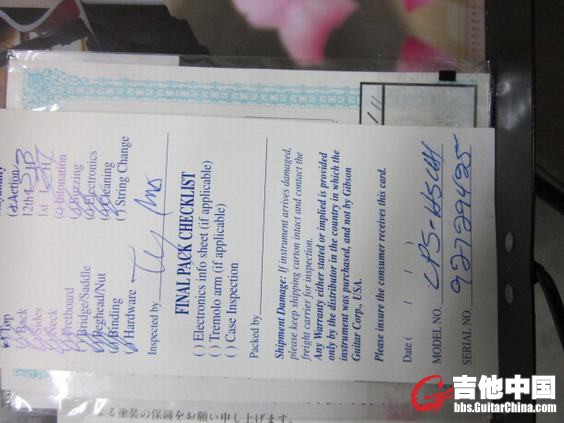 Top
Back
Sides
Neck
Fretboard
Bridge/Saddle
Peghead/Nut
Binding
Hardware
Action
12th
1st
Intonation
Buzzing
Electronics
Cleaning
String Change
Inspected by
FINAL PACK CHECKLIST
( ) Electronics info sheet (if applicable)
( ) Tremolo arm (if applicable)
( ) Case Inspection
Packed by
Shipment Damage: If instrument arrives damaged,
please keep shipping carton intact and contact the
freight carrier for inspection.
Any Warranty either stated or implied is provided
only by the distributor in the country in which the
instrument was purchased, and not by Gibson
Guitar Corp., USA.
Please insure the consumer receives this card.
Date ( ) ( )
MODEL NO. LPS-HSCH
SERIAL NO. 92729425
る塗装の保護をお願い申し上げます。
吉他中国
bbs.GuitarChina.com